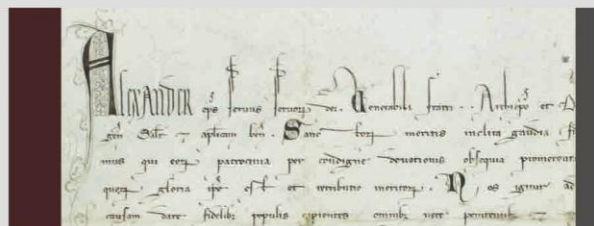 Alexander eps servus servor dei. Venerabili fratri . . Archiepo et D
gen Salt et aplicam ben. Sane bor meritis inclita gaudia
mus qui eor patrocinia per condigne devotionis obsequia promereant
quor gloria ipe est et retributio meritor. N os igitur ad
causam dare fidelibz populis cupientes omnibz vere penitentibz